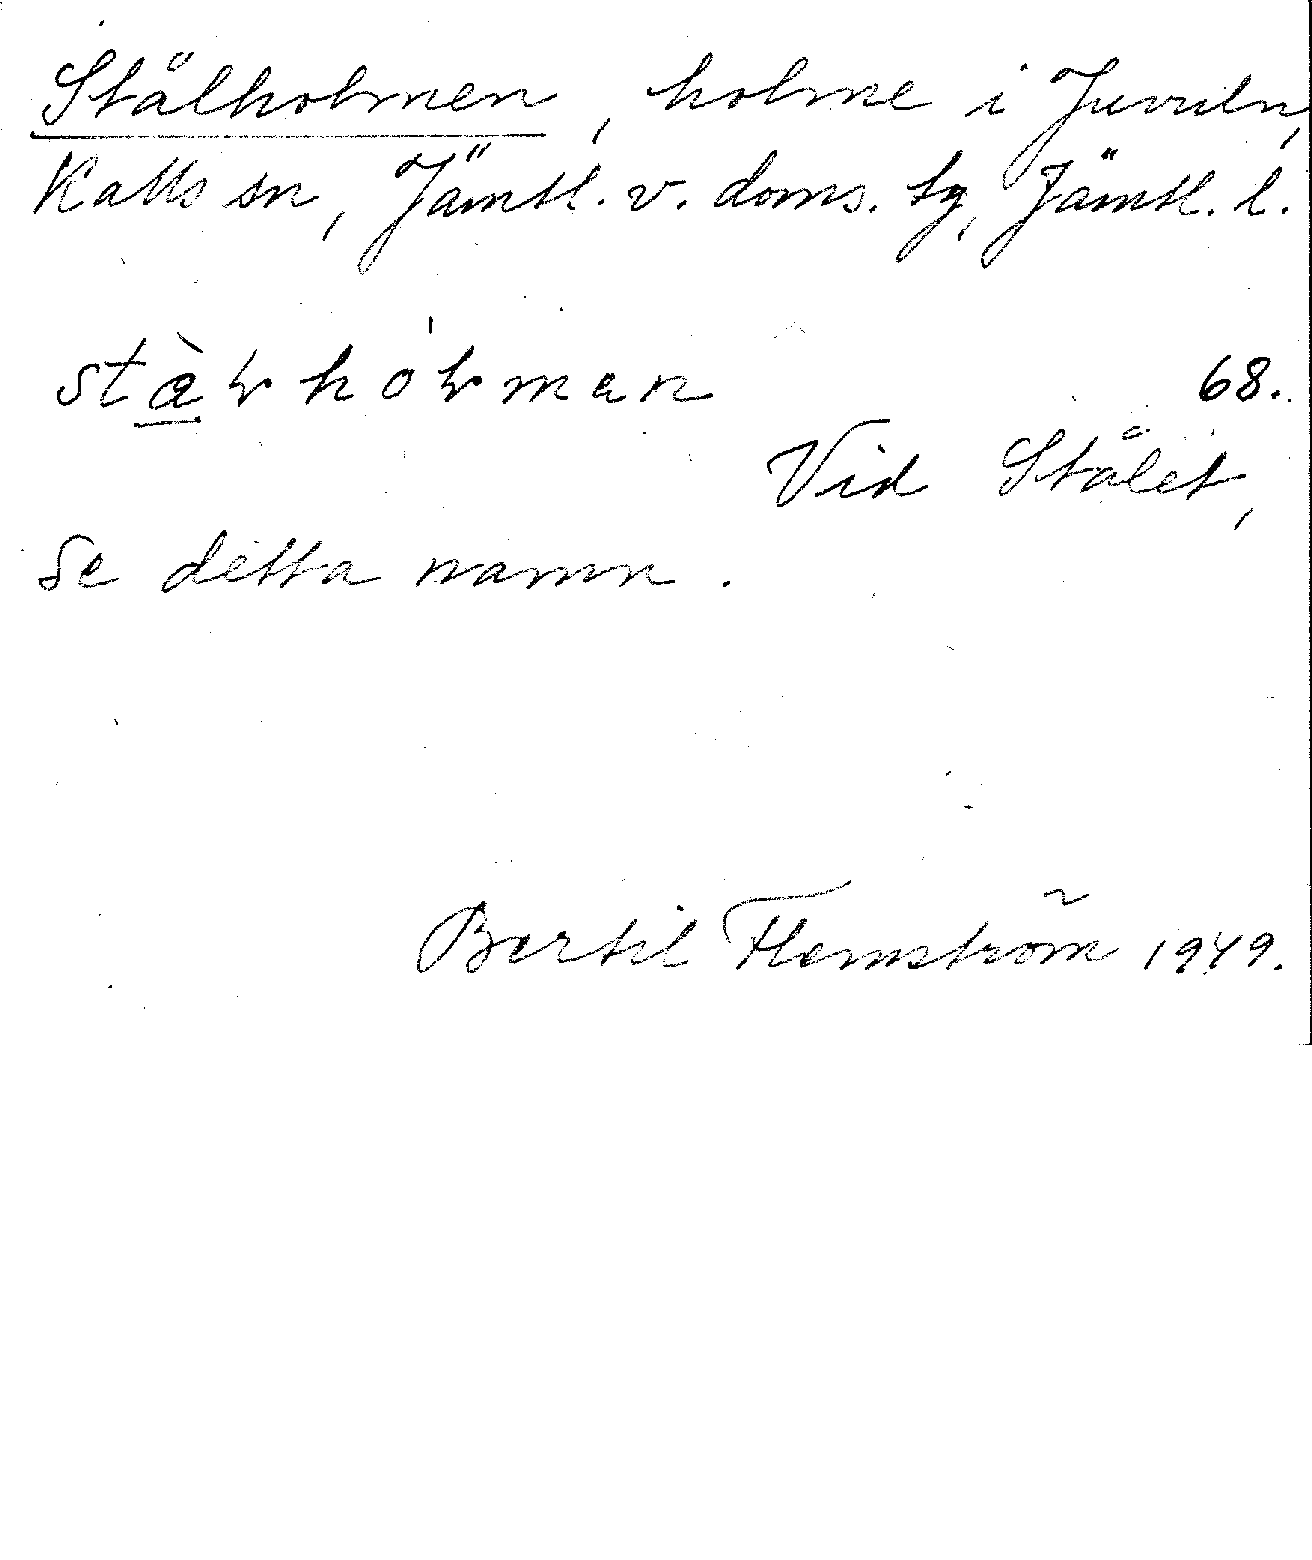 Stålholmen, holme i Juvuln,
Kalls sn, Jämtl. v. doms. tg, Jämtl. l.
68.
Vid Stålet,
se detta namn.
Bertil Flemström 1949.